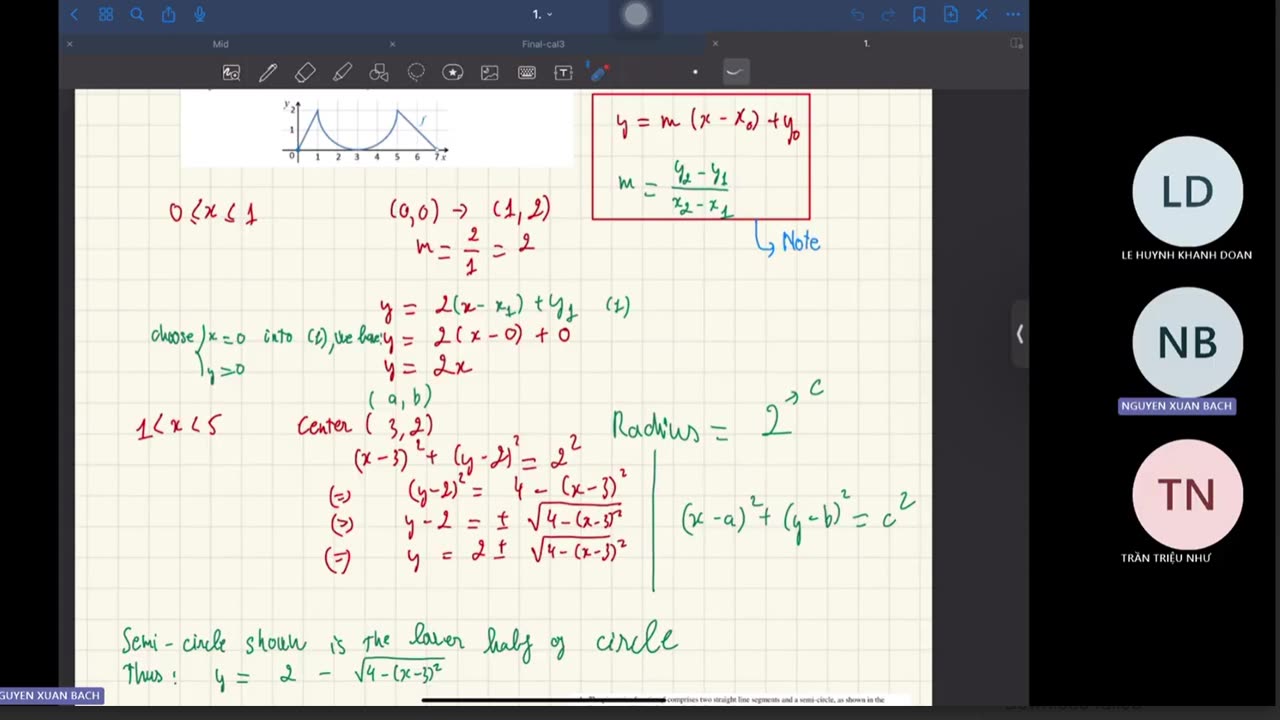 1.
Mid
Final-cal3
1.
y
2
1
0 1 2 3 4 5 6 7 x
f
y = m (x - x₀) + y₀
m = (y₂ - y₁)/(x₂ - x₁)
Note
0 ≤ x ≤ 1
(0,0) → (1,2)
m = 2/1 = 2
y = 2(x - x₁) + y₁ (1)
choose { x = 0 into (1), we have: y = 2(x - 0) + 0
y = 0
y = 2x
(a, b)
1 < x < 5
Center (3, 2)
Radius = 2 → c
(x-3)² + (y-2)² = 2²
(=) (y-2)² = 4 - (x-3)²
(=) y - 2 = ± √(4-(x-3)²)
(=) y = 2 ± √(4-(x-3)²)
(x-a)² + (y-b)² = c²
Semi-circle shown is the lower half of circle
Thus: y = 2 - √(4-(x-3)²)
comprises two straight line segments and a semi-circle, as shown in the
LD
LE HUYNH KHANH DOAN
NB
NGUYEN XUAN BACH
TN
TRẦN TRIỆU NHƯ
GUYEN XUAN BACH